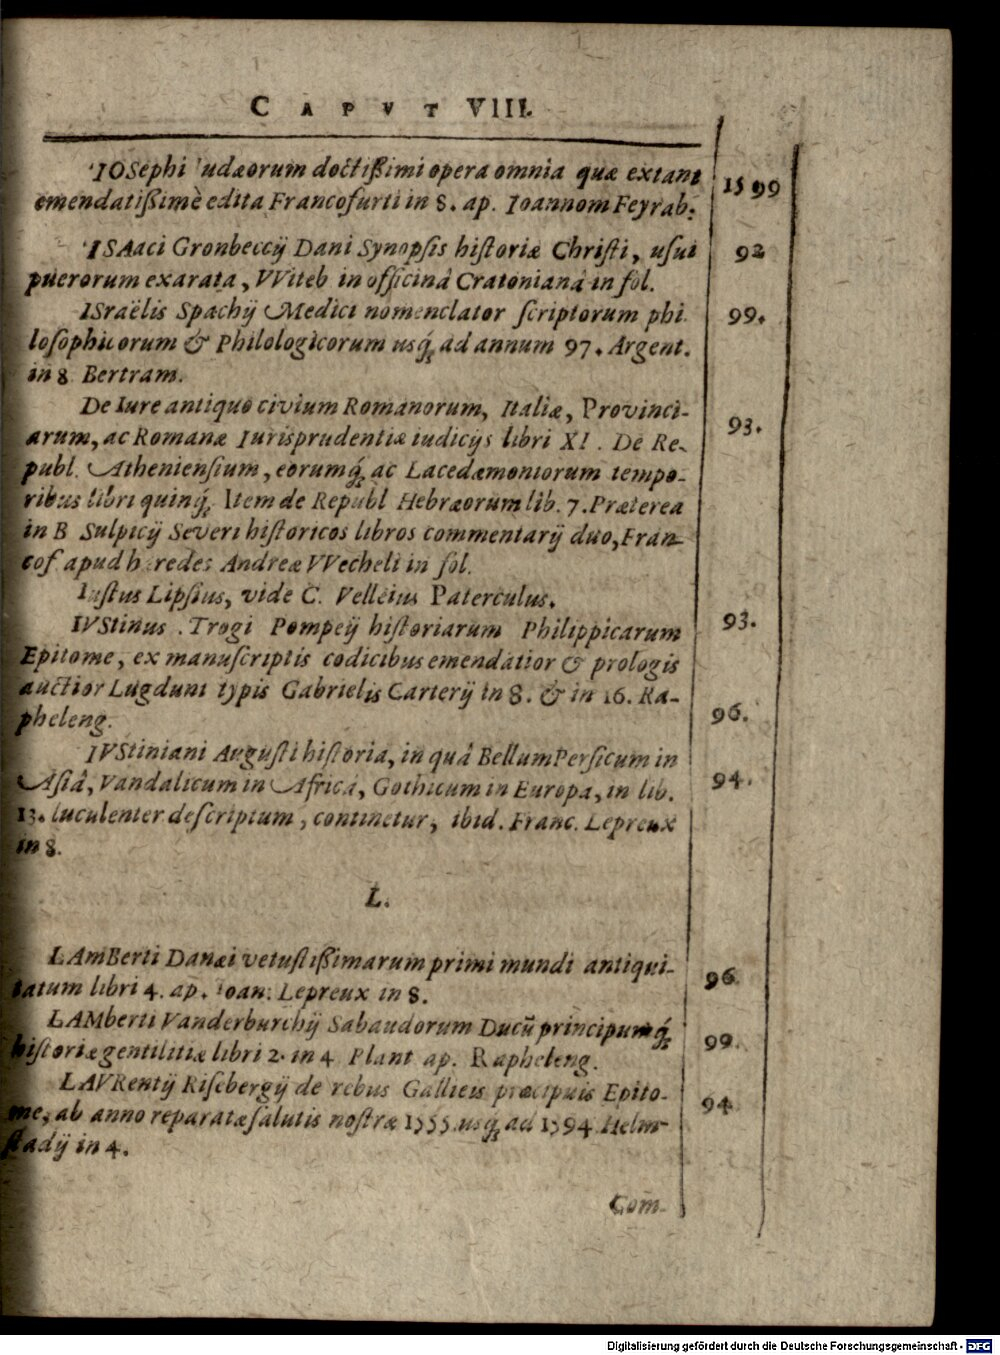 CAPVT VIII.
IOSephi Iudæorum doctißimi opera omnia quæ extant 1599
emendatißimè edita Francofurti in 8. ap. Ioannom Feyrab.
ISAaci Gronbeccij Dani Synopsis historiæ Christi, usui 92
puerorum exarata, VViteb in officinâ Cratonianâ in fol.
ISraëlis Spachij Medici nomenclator scriptorum phi 99.
losophicorum & Philologicorum usq́; ad annum 97. Argent.
in 8 Bertram.
De Iure antiquo civium Romanorum, Italiæ, Provinci- 93.
arum, ac Romanæ Iurisprudentiæ iudicijs libri XI. De Re-
publ. Atheniensium, eorumq́; ac Lacedæmoniorum tempo-
ribus libri quinq́; Item de Republ Hebræorum lib. 7. Præterea
in B Sulpicij Severi historicos libros commentarij duo, Fran-
cof apud heredes Andreæ VVecheli in fol.
Iustus Lipsius, vide C. Velleius Paterculus.
IVStinus . Trogi Pompeij historiarum Philippicarum 93.
Epitome, ex manuscriptis codicibus emendatior & prologis
auctior Lugduni typis Gabrielis Carterij in 8. & in 16. Ra-
pheleng. 96.
IVStiniani Augusti historia, in quâ Bellum Persicum in
Asiâ, Vandalicum in Africâ, Gothicum in Europa, in lib. 94.
13. luculenter descriptum, continetur, ibid. Franc. Lepreux
in 8.
L.
LAmBerti Danæi vetustißimarum primi mundi antiqui- 96
tatum libri 4. ap. Ioan: Lepreux in 8.
LAMberti Vanderburchij Sabaudorum Ducũ principumq́; 99.
historiæ gentilitiæ libri 2. in 4 Plant ap. Rapheleng.
LAVRentij Risebergij de rebus Gallicis præcipuis Epito- 94
me, ab anno reparatæ salutis nostræ 1555. usq́; ad 1594 Helm-
stadij in 4.
Com-
Digitalisierung gefördert durch die Deutsche Forschungsgemeinschaft - DFG